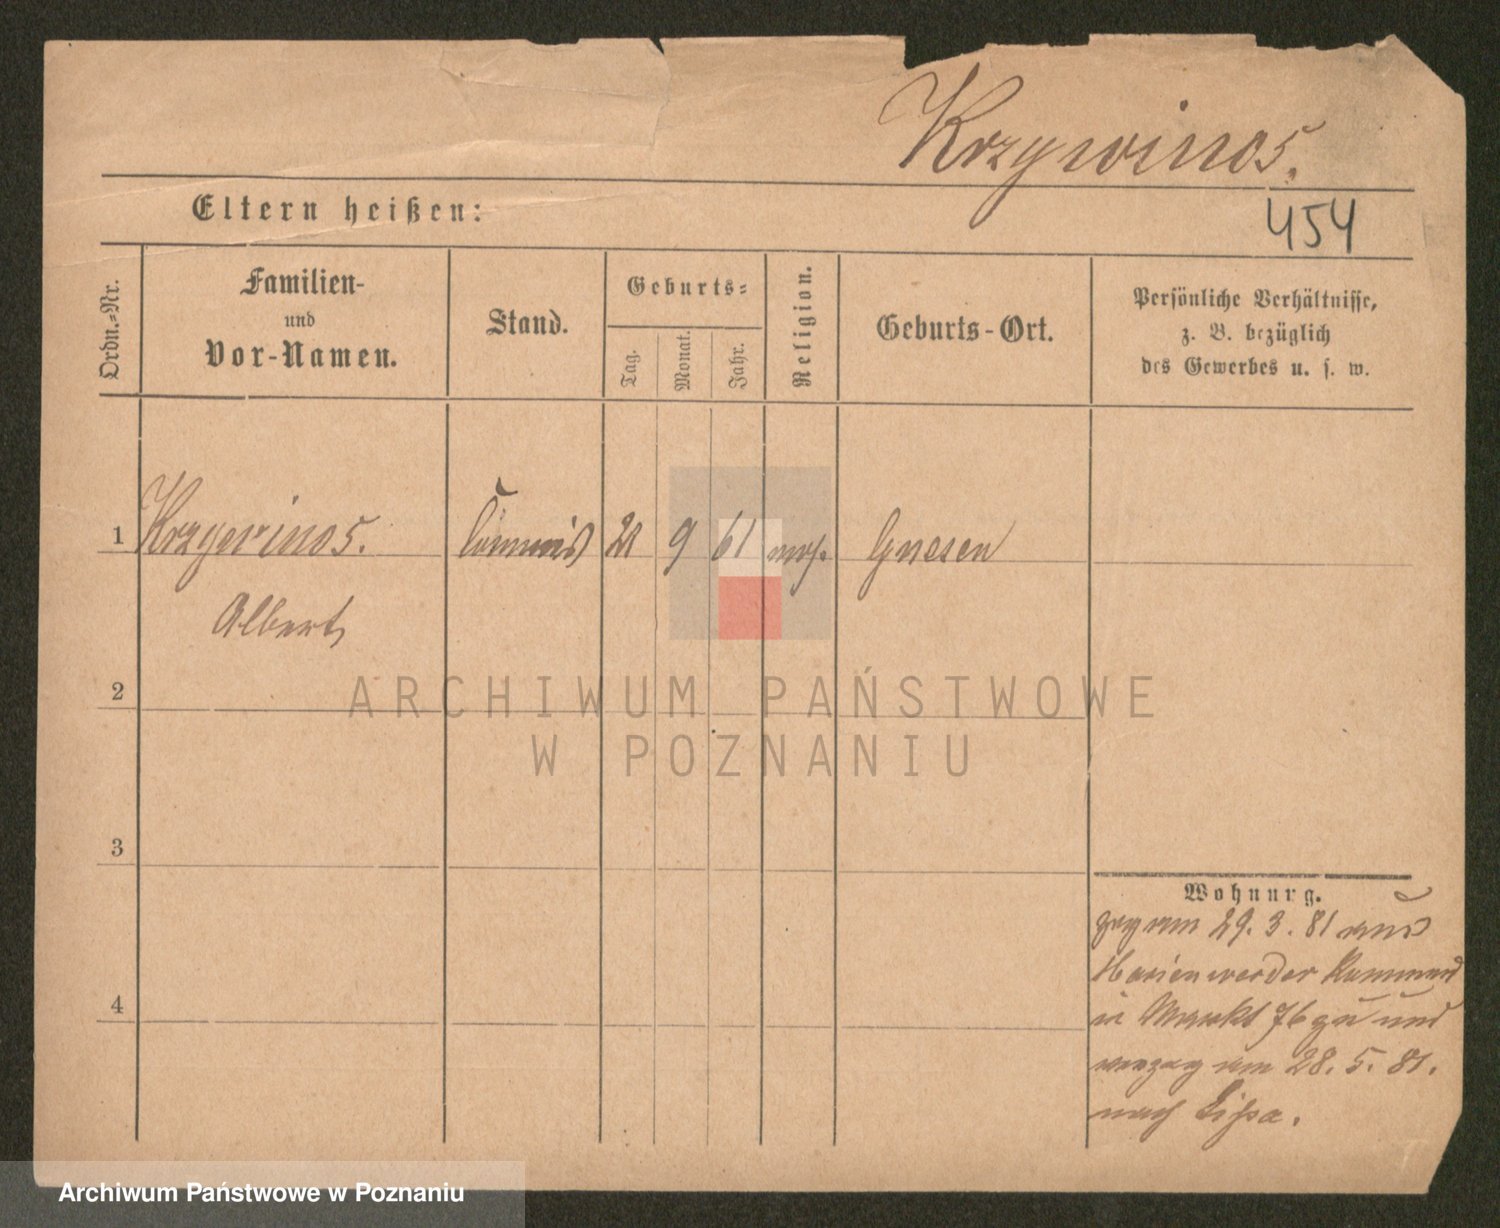 Krzywinos.
Eltern heißen:
454
Ordn.-Nr.
Familien-
und
Vor-Namen.
Stand.
Geburts-
Tag.
Monat.
Jahr.
Religion.
Geburts-Ort.
Persönliche Verhältnisse,
z. B. bezüglich
des Gewerbes u. s. w.
1 Krzywinos. Commis 9 61 mos. Gnesen
Albert
2
ARCHIWUM PAŃSTWOWE
W POZNANIU
3
4
Wohnung.
zog am 29. 3. 81 aus
Marienwerder kommend
in Markt 76 zu und
verzog am 28. 5. 81.
nach Lissa.
Archiwum Państwowe w Poznaniu